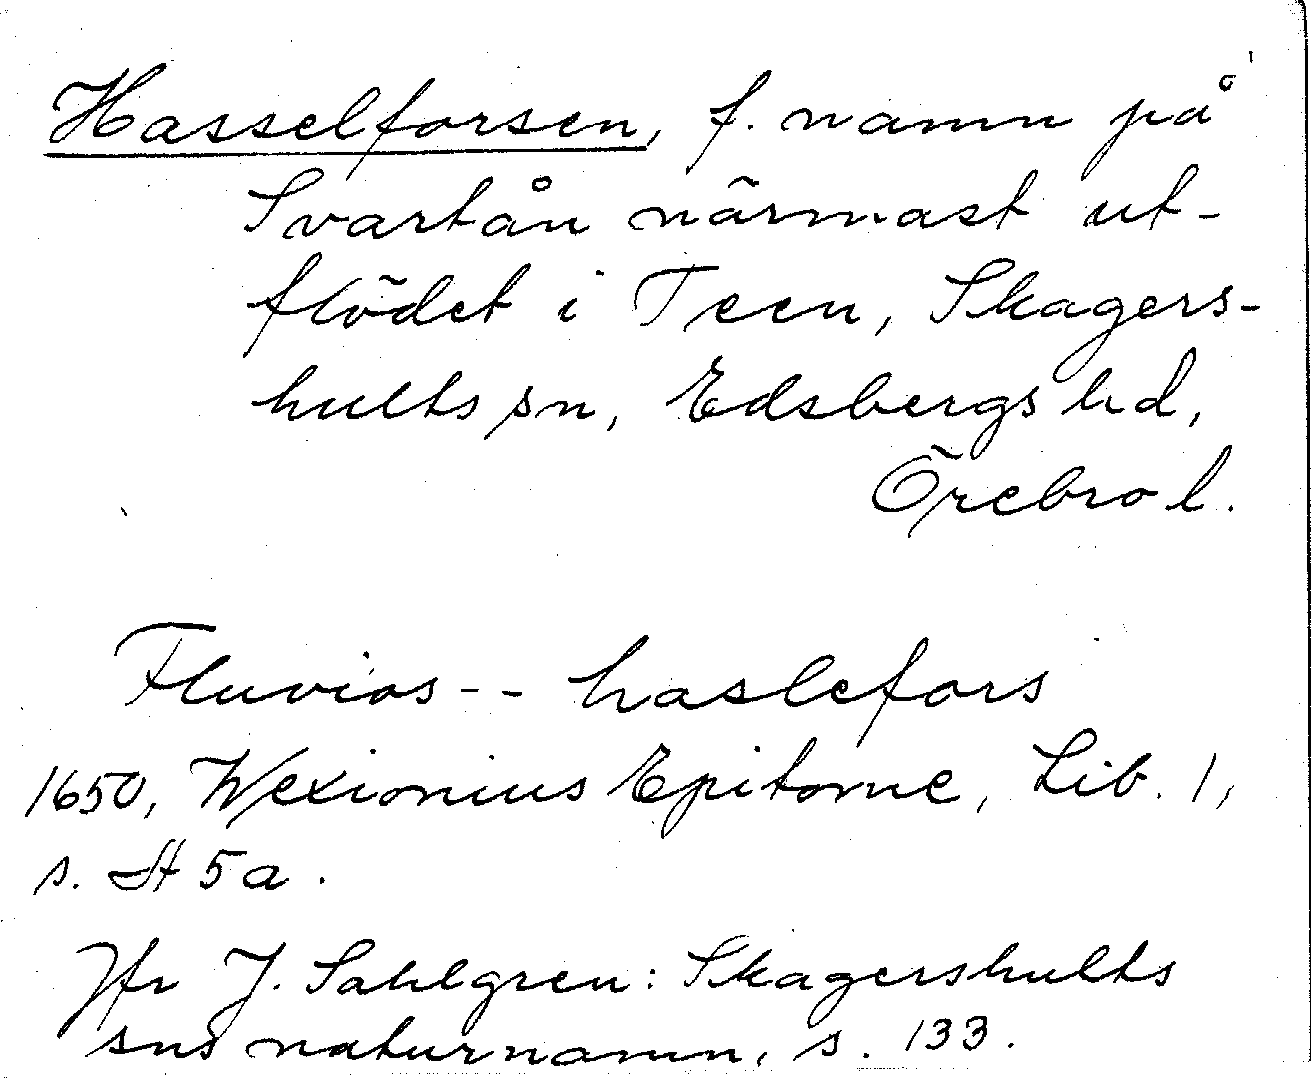 Hasselforsen, f. namn på
Svartån närmast ut-
flödet i Teen, Skagers-
hults sn, Edsbergs hd,
Örebro l.
Fluvios -- haslefors
1650, Wexionius Epitome, Lib. 1,
s. 5a.
Jfr J. Sahlgren: Skagershults
sns naturnamn, s. 133.